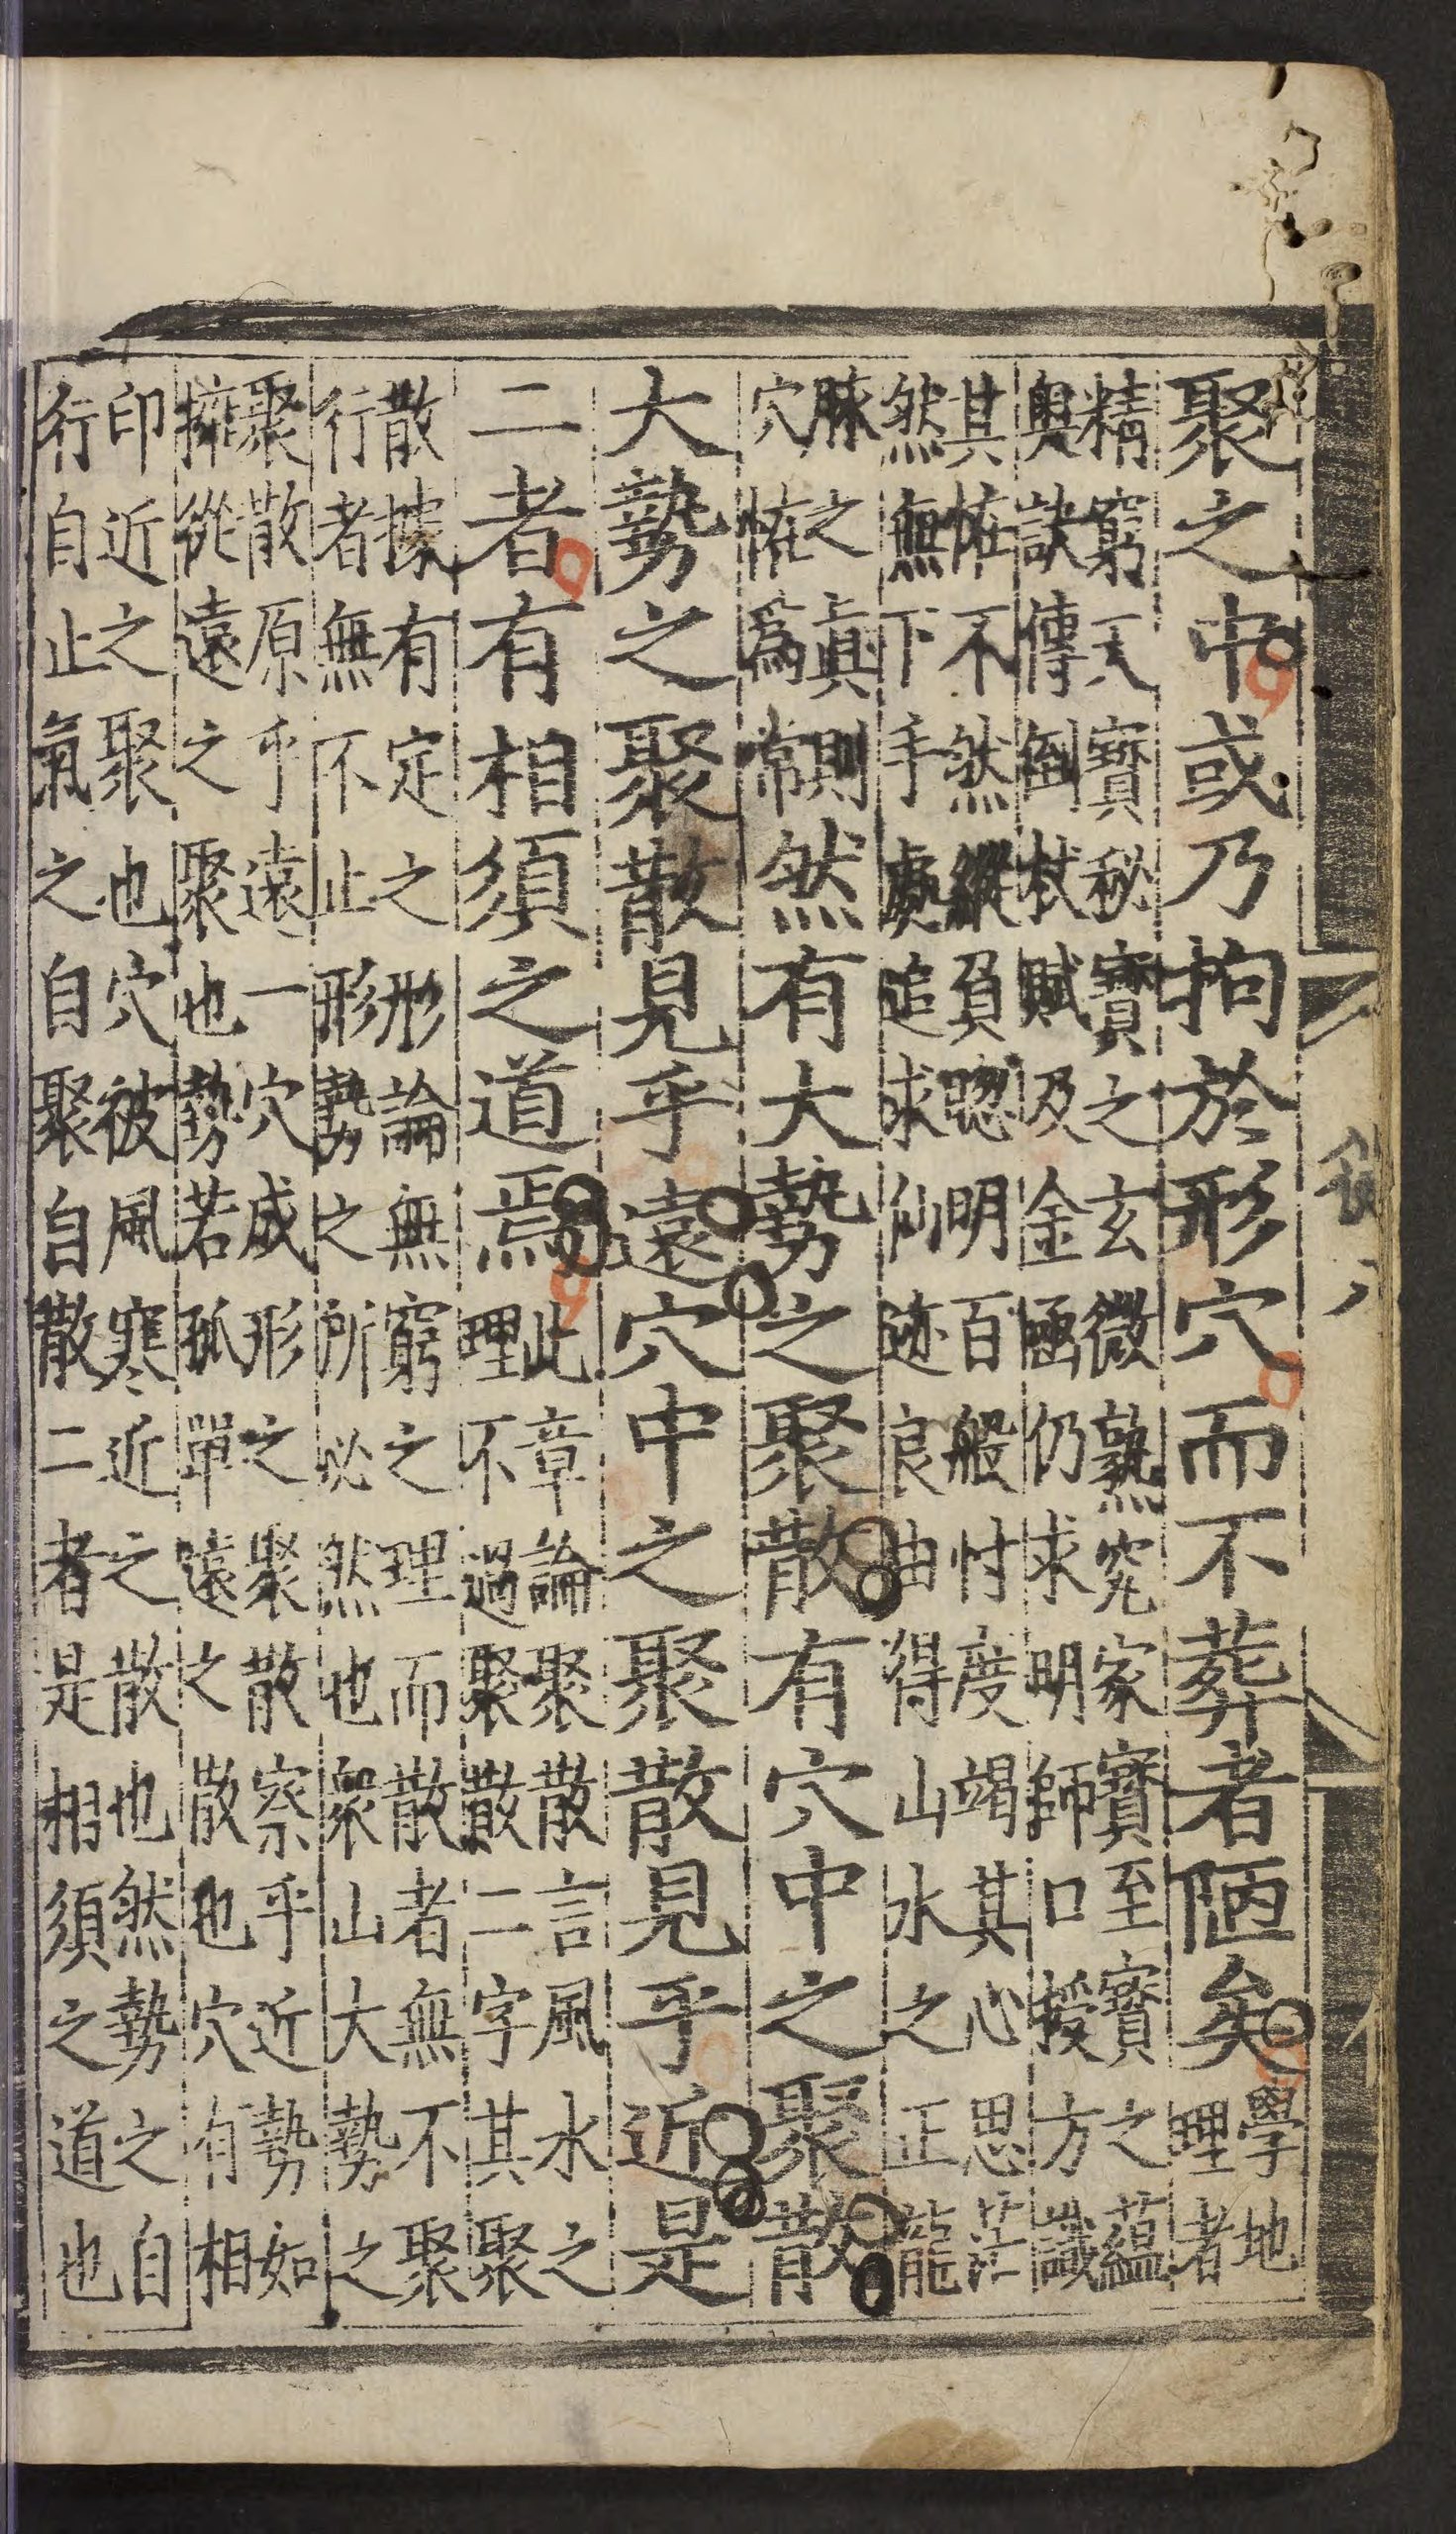 聚之中或乃拘於形穴而不葬者陋矣學地
理者
精窮天寶秘寶之玄微熟究家寶至寶之蘊
奧訣傳倒杖賦及金函仍求明師口授方識
其恠不然縱負聰明百般忖度竭其心思茫
然無下手處追求仙跡良由得山水之正龍
脉之眞則
穴恠爲常然有大勢之聚散有穴中之聚散
大勢之聚散見乎遠穴中之聚散見乎近是
二者有相須之道焉此章論聚散言風水之
理不過聚散二字其聚
散據有定之形論無窮之理而散者無不聚
行者無不止形勢之所必然也衆山大勢之
聚散原乎遠一穴成形之聚散察乎近勢如
擁從遠之聚也勢若孤單遠之散也穴有相
印近之聚也穴彼風寒近之散也然勢之自
行自止氣之自聚自散二者是相須之道也